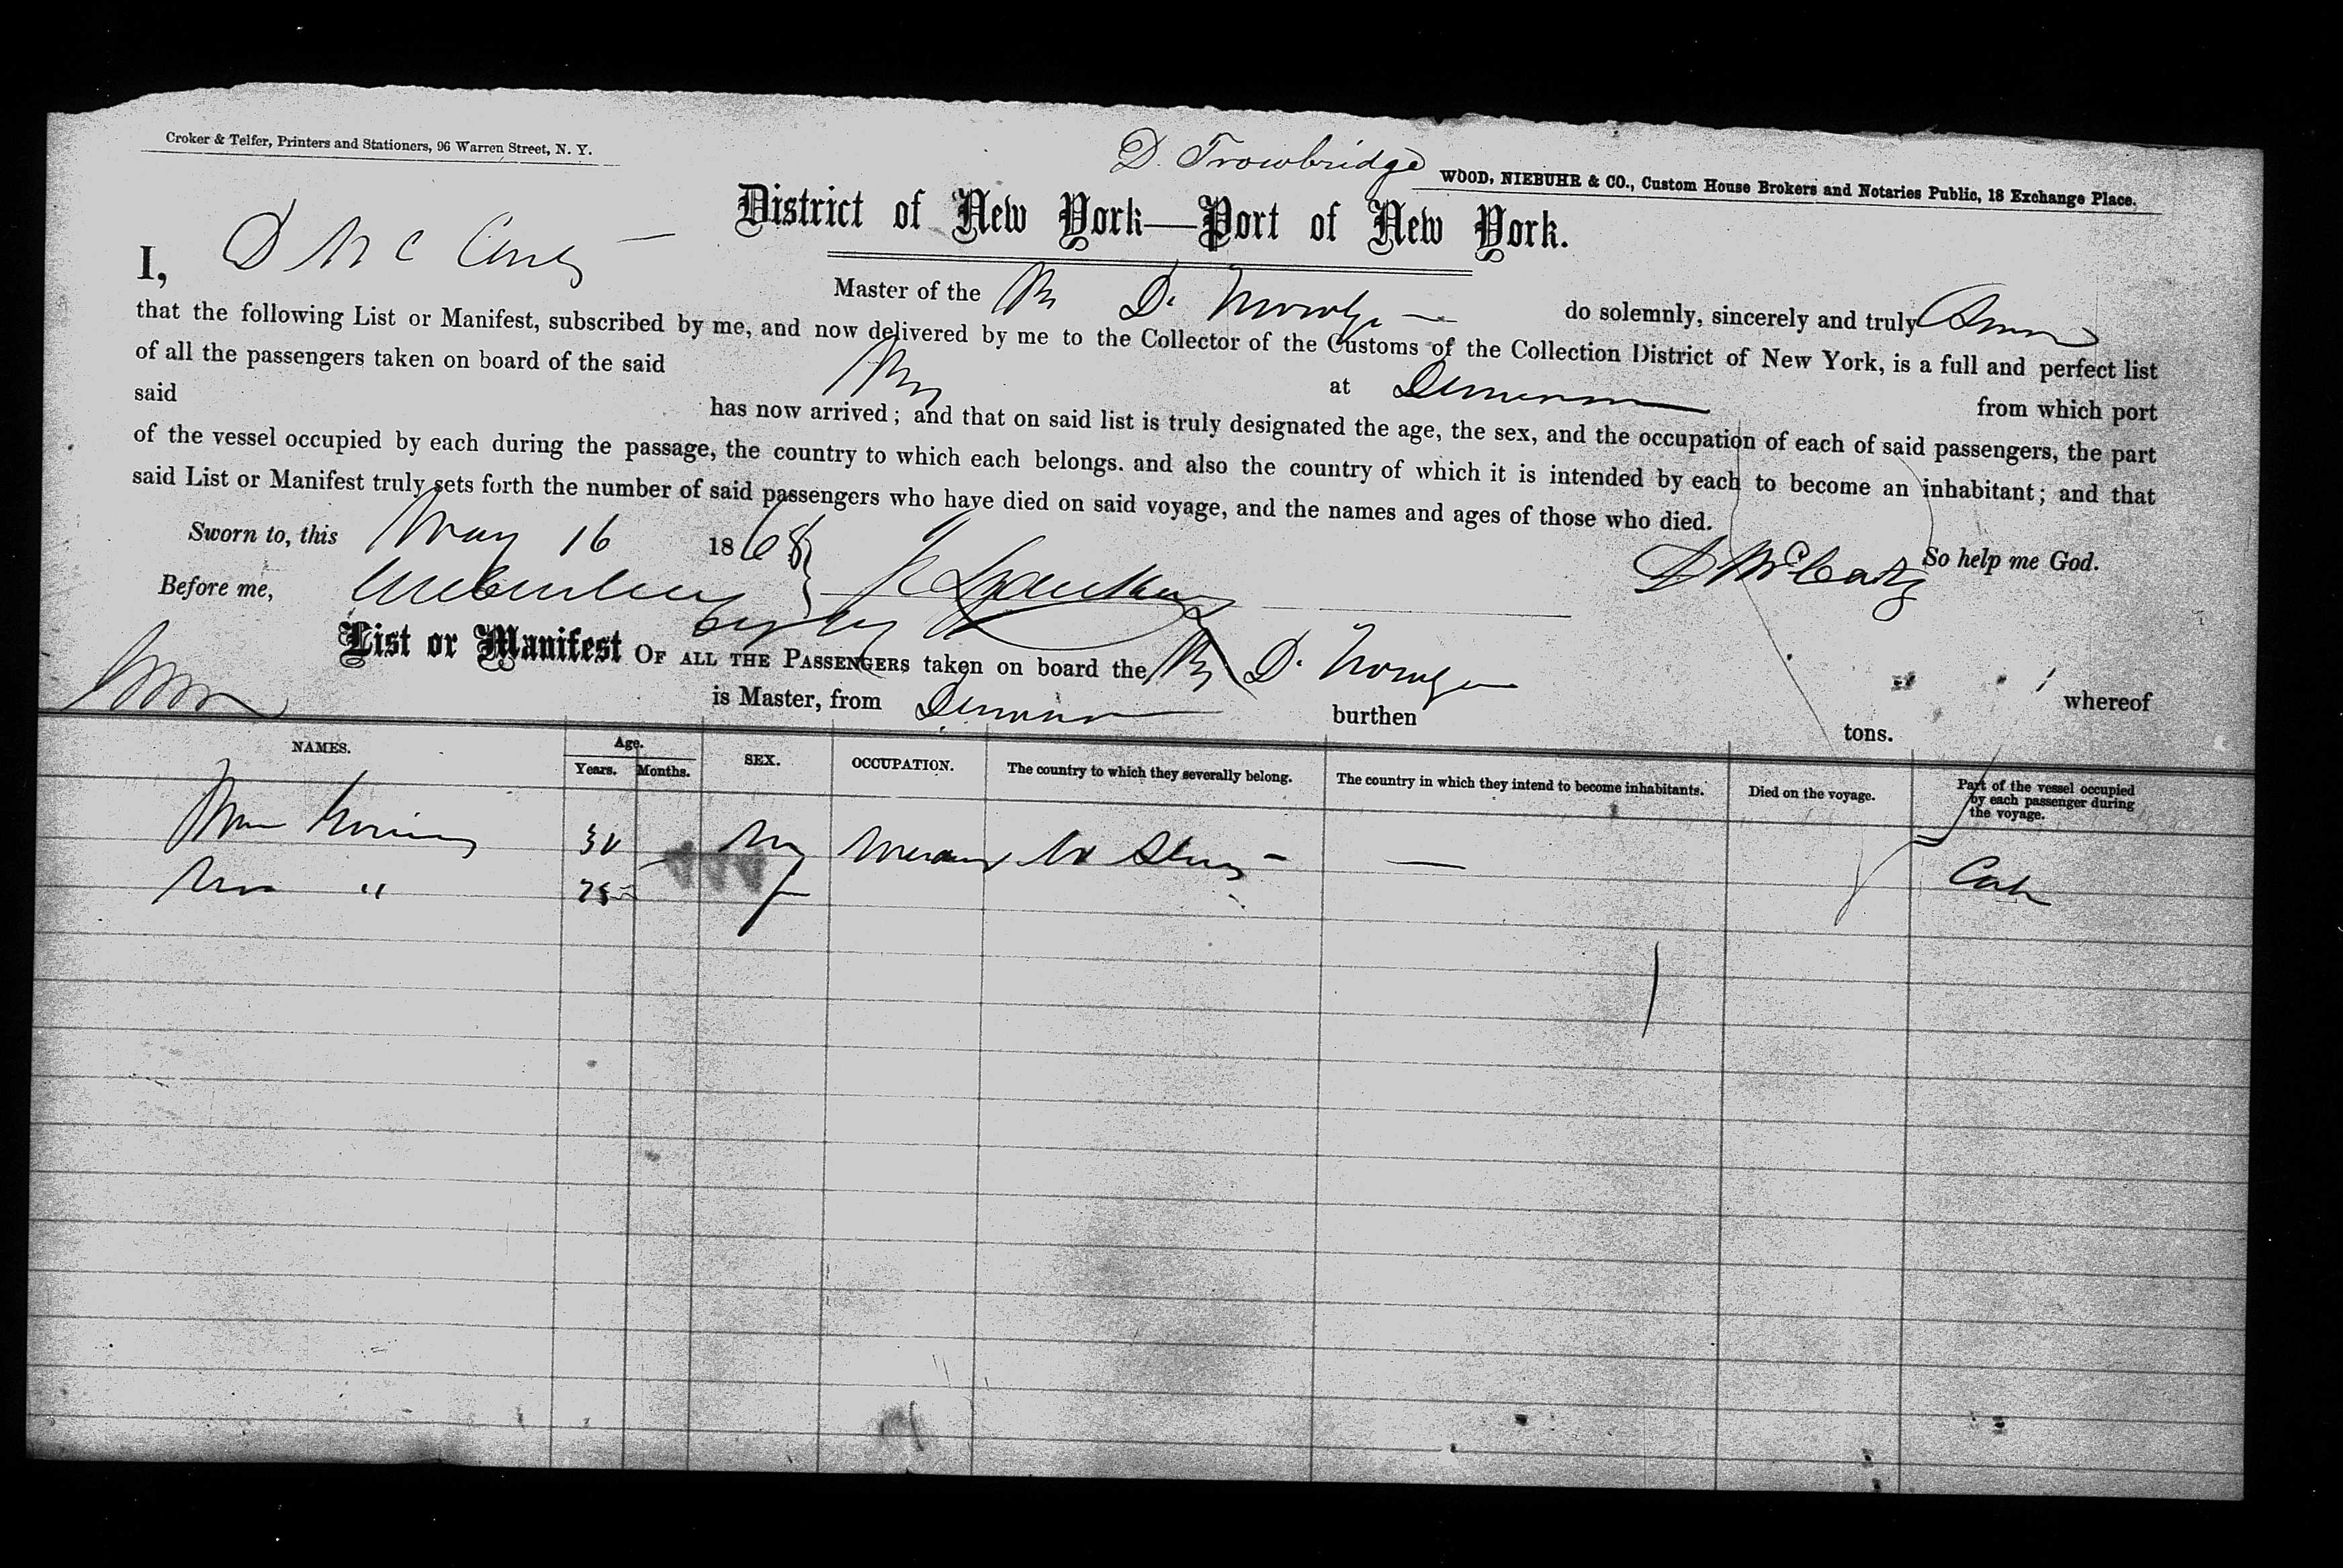 Croker & Telfer, Printers and Stationers, 96 Warren Street, N. Y.
D. Trowbridge WOOD, NIEBUHR & CO., Custom House Brokers and Notaries Public, 18 Exchange Place.
District of New York—Port of New York.
I, D McCarty Master of the D. do solemnly, sincerely and truly
that the following List or Manifest, subscribed by me, and now delivered by me to the Collector of the Customs of the Collection District of New York, is a full and perfect list
of all the passengers taken on board of the said at Demerara from which port
said has now arrived; and that on said list is truly designated the age, the sex, and the occupation of each of said passengers, the part
of the vessel occupied by each during the passage, the country to which each belongs. and also the country of which it is intended by each to become an inhabitant; and that
said List or Manifest truly sets forth the number of said passengers who have died on said voyage, and the names and ages of those who died.
Sworn to, this May 16 1868 So help me God.
Before me, D McCarty
List or Manifest OF ALL THE PASSENGERS taken on board the D. whereof
is Master, from Demerara burthen tons.
NAMES. Age. Years. Months. SEX. OCCUPATION. The country to which they severally belong. The country in which they intend to become inhabitants. Died on the voyage. Part of the vessel occupied by each passenger during the voyage.
M — Cab
" 25 f